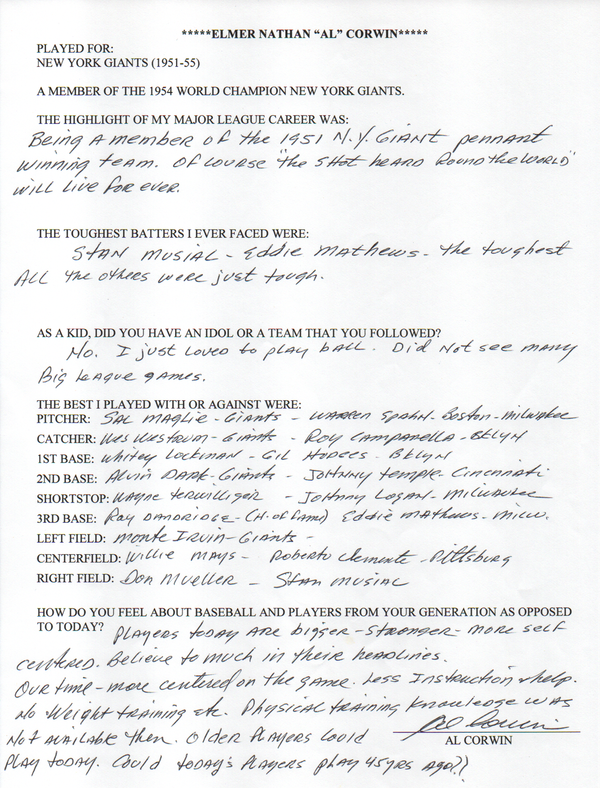 *****ELMER NATHAN “AL” CORWIN*****
PLAYED FOR:
NEW YORK GIANTS (1951-55)
A MEMBER OF THE 1954 WORLD CHAMPION NEW YORK GIANTS.
THE HIGHLIGHT OF MY MAJOR LEAGUE CAREER WAS:
Being a member of the 1951 N.Y. Giant pennant
winning team. Of course "the shot heard round the world"
will live for ever.
THE TOUGHEST BATTERS I EVER FACED WERE:
Stan Musial - Eddie Mathews - the toughest
All the others were just tough.
AS A KID, DID YOU HAVE AN IDOL OR A TEAM THAT YOU FOLLOWED?
No. I just loved to play ball. Did not see many
Big League games.
THE BEST I PLAYED WITH OR AGAINST WERE:
PITCHER: Sal Maglie - Giants - Warren Spahn - Boston - Milwakee
CATCHER: Wes Westrum - Giants - Roy Campanella - BKLYN
1ST BASE: Whitey Lockman - Gil Hodges - BKLYN
2ND BASE: Alvin Dark - Giants - Johnny Temple - Cincinnati
SHORTSTOP: Wayne Terwilliger - Johnny Logan - Milwaukee
3RD BASE: Ray Dandridge - (H. of Fame) Eddie Mathews - Milw.
LEFT FIELD: Monte Irvin - Giants -
CENTERFIELD: Willie Mays - Roberto Clemente - Pittsburg
RIGHT FIELD: Don Mueller - Stan Musial
HOW DO YOU FEEL ABOUT BASEBALL AND PLAYERS FROM YOUR GENERATION AS OPPOSED
TO TODAY? Players today are bigger - stronger - more self
centered. Believe to much in their headlines.
Our time - more centered on the game. Less instruction & help.
No weight training etc. Physical training knowledge was
not available then. Older players could
Al Corwin
AL CORWIN
play today. Could today's players play 45 yrs ago??